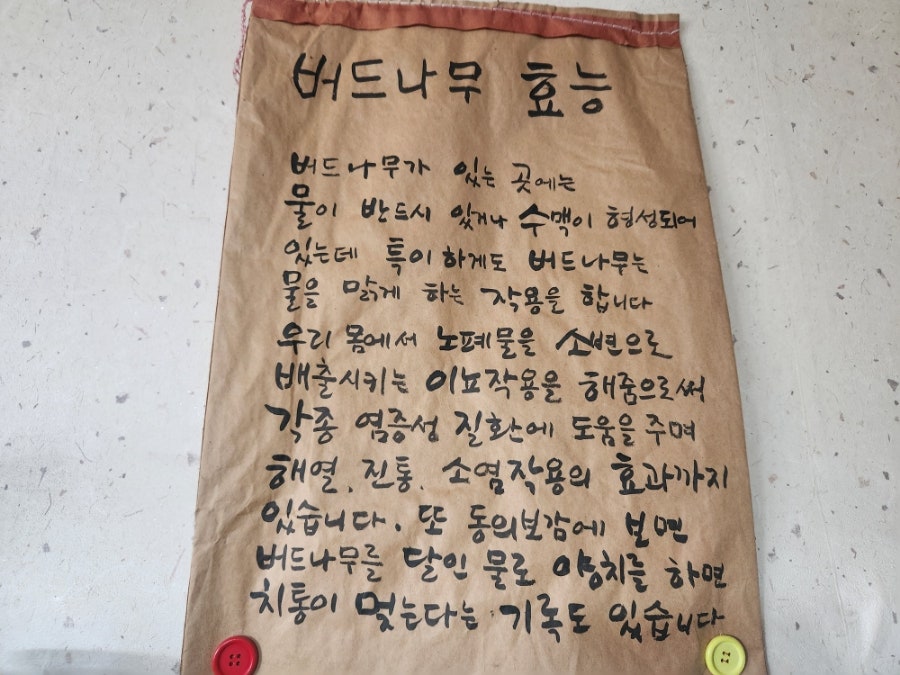 버드나무 효능
버드나무가 있는 곳에는
물이 반드시 있거나 수맥이 형성되어
있는데 특이하게도 버드나무는
물을 맑게 하는 작용을 합니다
우리 몸에서 노폐물을 소변으로
배출시키는 이뇨작용을 해줌으로써
각종 염증성 질환에 도움을 주며
해열, 진통, 소염작용의 효과까지
있습니다. 또 동의보감에 보면
버드나무를 달인 물로 양치를 하면
치통이 멎는다는 기록도 있습니다